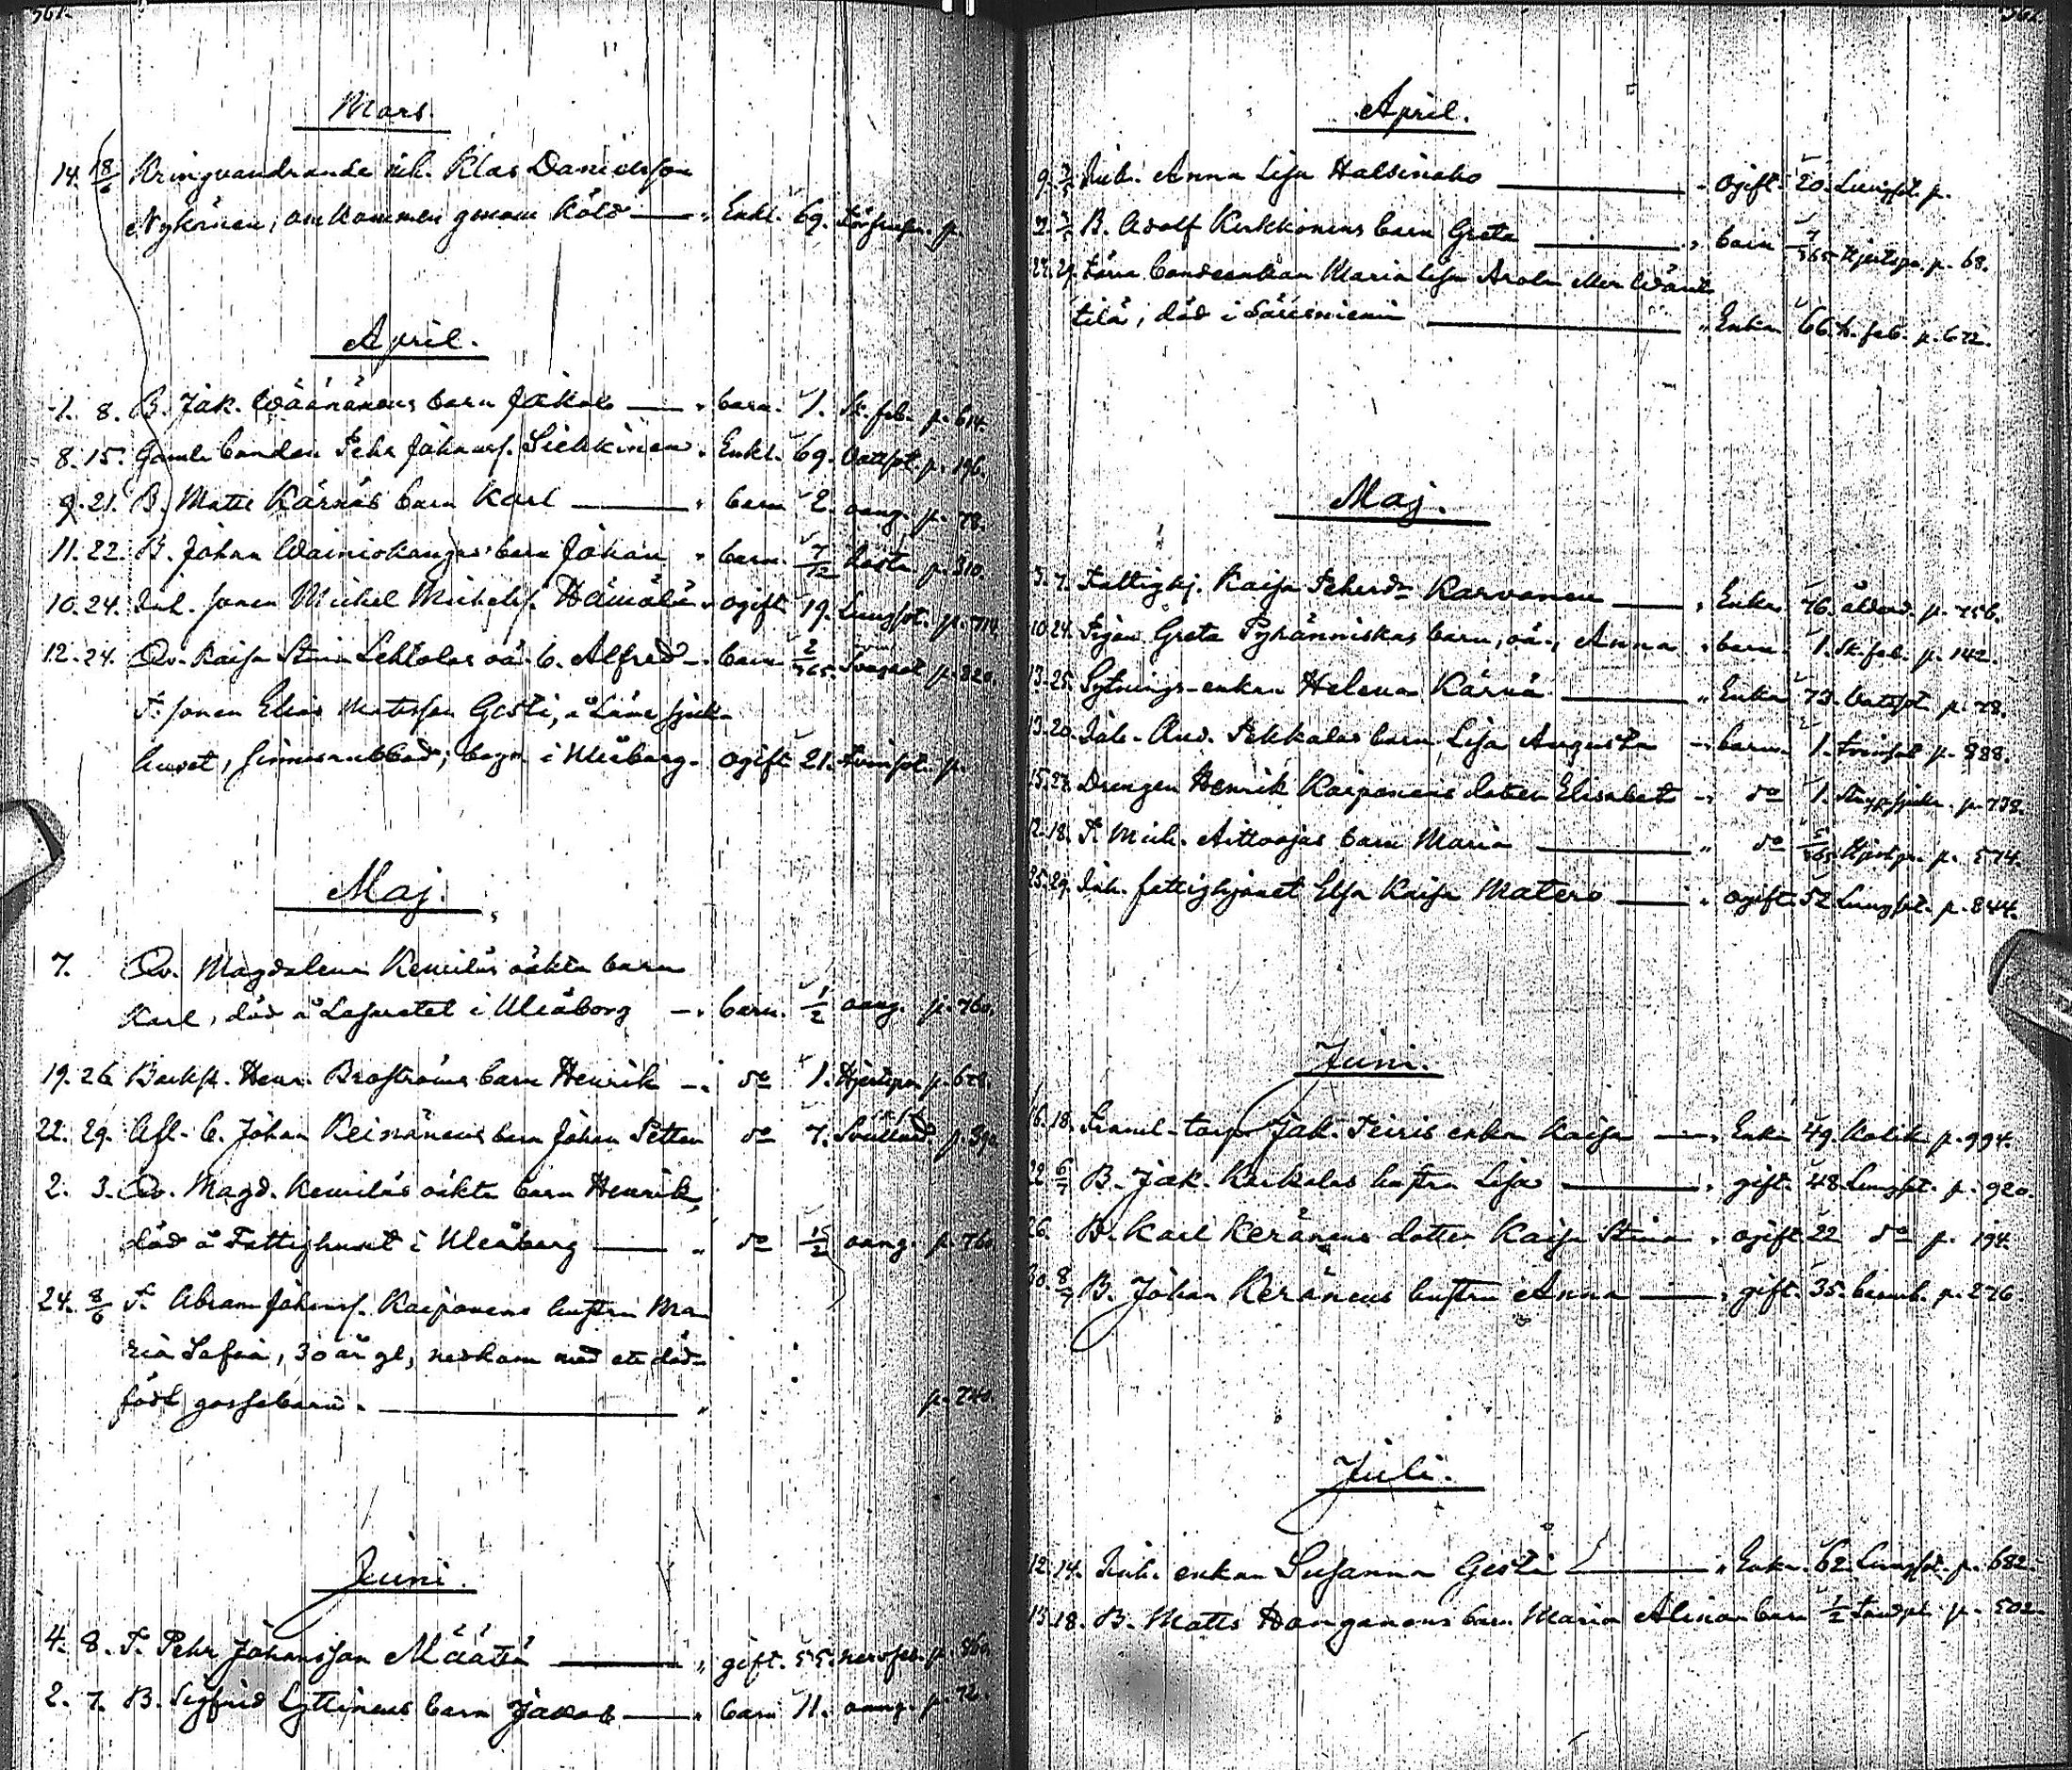 561.
Mars.
14. 18/6 Kringvandrande inh. Klas Danielsson
Nykänen, omkommen genom köld — " Enkl. 69. p.
April.
1. 8. B. Jak. Wäänänens barn Jakob — " barn. 1. Sk. feb. p. 614.
8. 15. Gamle bonden Pehr Johanss. Siekkinen " Enkl. 69. Vattsot. p. 196.
9. 21. B. Matts Kärnäs barn Karl — " barn 2. oang. p. 78.
11. 22. B. Johan Wainiokangas barn Johan " barn. 7/12 hosta p. 310.
10. 24. Inh. sonen Michel Michelss. Hämälä " ogift 19. Lungsot. p. 714.
12. 24. Qv. Kaisa Stina Lehtolas oä. b. Alfred — " barn 2/365. p. 820.
T. sonen Elias Matsson Gesti, å Läne sjuk-
huset, sinnesrubbad; begr. i Uleåborg. ogift 21. Tvinsot. p.
Maj.
7. Qv. Magdalena Kemiläs oäkta barn
Karl, död å Lasarettet i Uleåborg — " barn. 1/2 oang. p. 760.
19. 26 Backst. Henr. Broströms barn Henrik — " do 1. Hjertspr. p. 678.
22. 29. Afl. b. Johan Keinänens barn Johan Petter do 7. p. 390.
2. 3. Qv. Magd. Kemiläs oäkta barn Henrik,
död å Fattighuset i Uleåborg — " do 1/2 oang. p. 760
24. 8/6 T. Abram Johanss. Karppanens hustru Ma
ria Sofia, 30 år gl, nedkom med ett död-
född gossebarn. — " p. 740.
Juni.
4. 8. T. Pehr Johansson Määttä — " gift. 55. nervfeb. p. 860.
2. 7. B. Sigfrid Lyttinens barn Jakob — " barn 11. oang. p. 72.
April.
9. 3/5 Inh. Anna Lisa Halsinaho — " ogift. 20. Lungsot. p.
2. B. Adolf Kirkkonens barn Greta — " barn 7/365 Hjertspr. p. 68.
22. 29. Förra bondeenkan Maria Lisa Arola eller Wänt
tilä, död i Säresniemi — " Enka 66. h. feb. p. 672.
Maj.
3. 7. Fattighj. Kaisa Pehrsdr Karvonen — " Enka 76. ålderd. p. 756.
10. 24. Pigan Greta Pyhänniskas barn, oä., Anna " barn. 1. Sk. feb. p. 142.
13. 25. Sytnings-enkan Helena Kärnä — " Enka 73. Vattsot p. 78.
13. 20. Inh. And. Pekkalas barn Lisa Augusta — " barn. 1. Tvinsot p. 888.
15. 27. Drengen Henrik Karppanens dotter Elisabet — " do 1. p. 738.
12. 18. T. Mich. Aittoojas barn Maria — " do 5/365 Hjertspr. p. 574.
25. 29. Inh. fattighjonet Elsa Kaisa Matero — " ogift. 52 Lungsot. p. 844.
Juni.
16. 18. torp. Jak. Peiris enka Kaisa — " Enka 49. Kolik p. 994.
22 6/7 B. Jak. Karkolas hustru Lisa — " gift. 48. Lungsot. p. 920.
26. B. Karl Keränens dotter Kaisa Stina " ogift 22 do p. 194.
30. 8/7 B. Johan Keränens hustru Anna — " gift. 35. barnb. p. 276.
Juli.
12. 14. Inh. enkan Susanna Gesti — " Enka. 62. Lungsot. p. 682.
13. 18. B. Matts Hanganens barn Maria Alina barn 1/2 p. 502.